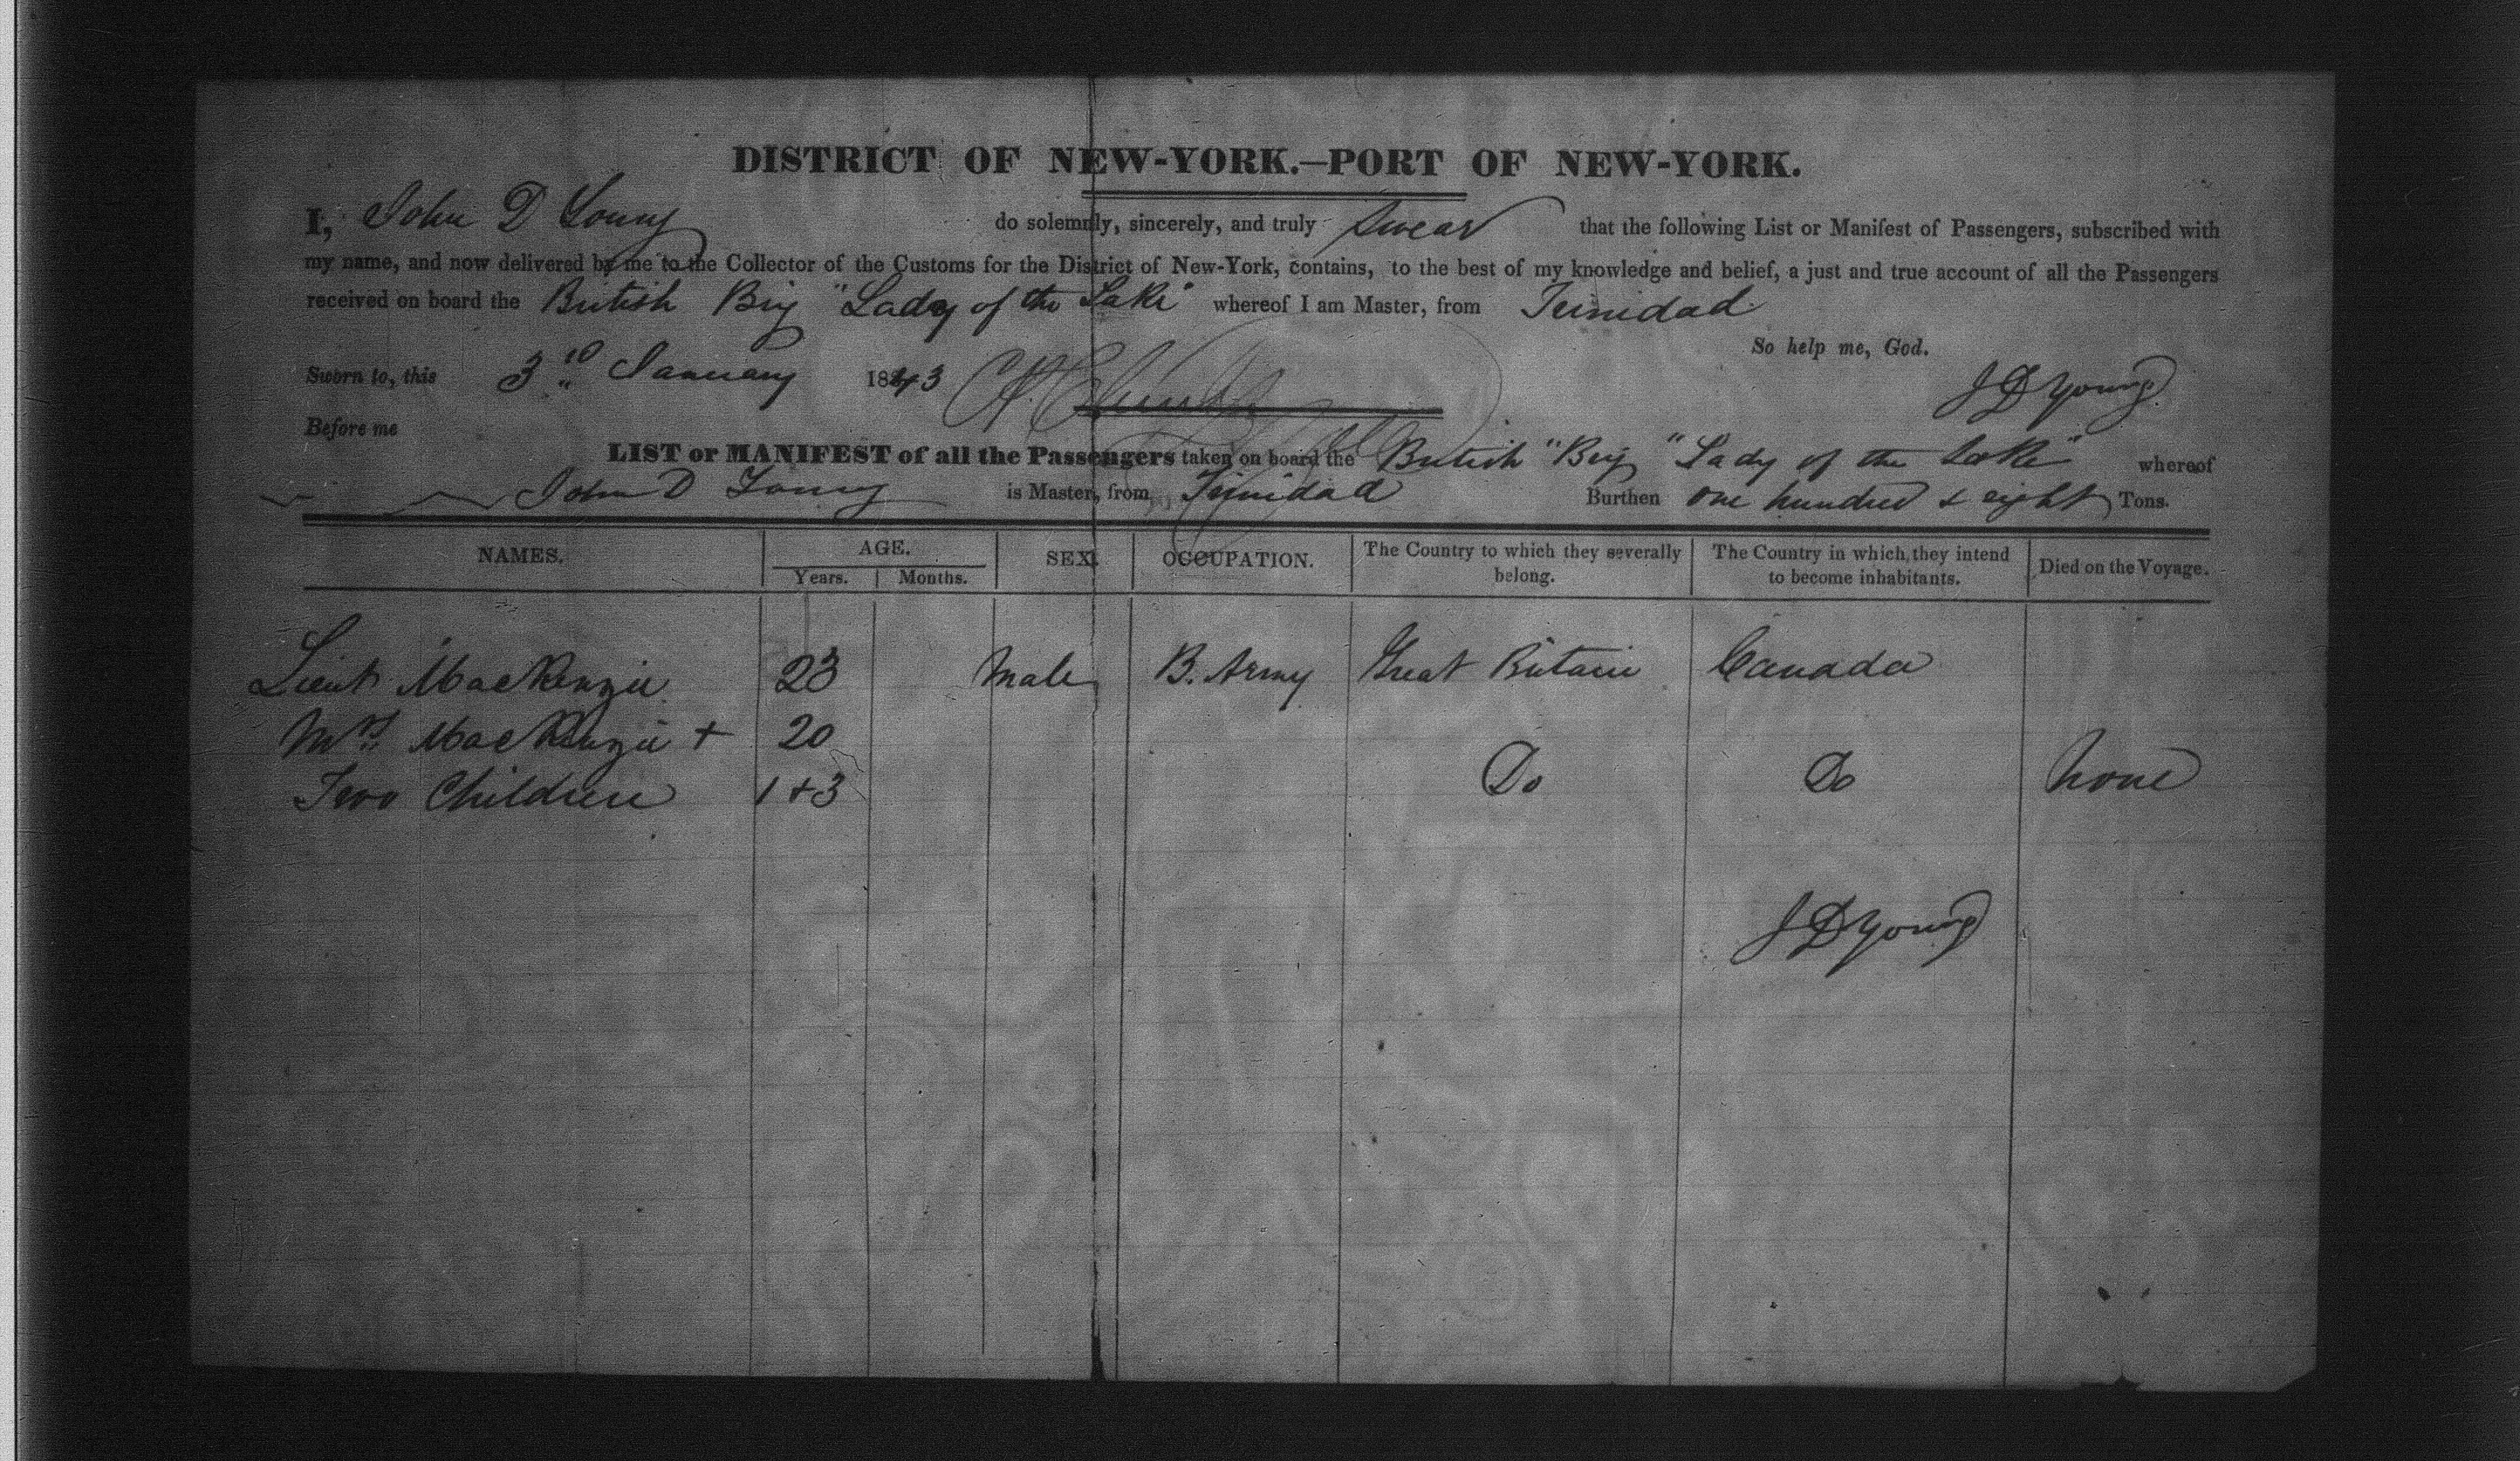 DISTRICT OF NEW-YORK.—PORT OF NEW-YORK.
I, John D Young do solemnly, sincerely, and truly swear that the following List or Manifest of Passengers, subscribed with
my name, and now delivered by me to the Collector of the Customs for the District of New-York, contains, to the best of my knowledge and belief, a just and true account of all the Passengers
received on board the British Brig "Lady of the Lake" whereof I am Master, from Trinidad
So help me, God.
Sworn to, this 3 January 1843
J D Young
Before me
LIST or MANIFEST of all the Passengers taken on board the British "Brig "Lady of the Lake" whereof
John D Young is Master, from Trinidad Burthen one hundred & eight Tons.
NAMES. AGE. SEX. OCCUPATION. The Country to which they severally belong. The Country in which they intend to become inhabitants. Died on the Voyage.
Years. Months.
Lieut MacKenzie 23 Male B. Army Great Britain Canada
Mrs MacKenzie + 20
Two Children 1+3 Do Do None
J D Young